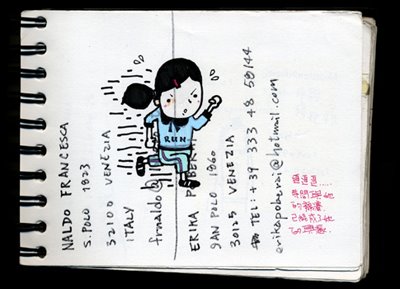 NALDO FRANCESCA
S. POLO 1823
32100 VENEZIA
ITALY
frnaldo@
ERIKA
SAN POLO 1960
30125 VENEZIA
TEL: +39 333 48 59144
erikapoberai@hotmail.com
RUN
時間與她
的
已成了她
的興趣.